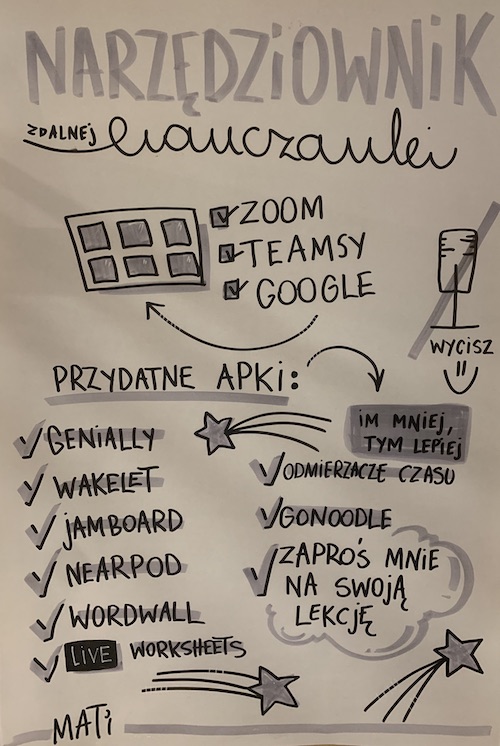 NARZĘDZIOWNIK
ZDALNEJ nauczanki
ZOOM
TEAMSY
GOOGLE
WYCISZ
PRZYDATNE APKI:
IM MNIEJ,
TYM LEPIEJ
GENIALLY
WAKELET
JAMBOARD
NEARPOD
WORDWALL
LIVE WORKSHEETS
ODMIERZACZE CZASU
GONOODLE
ZAPROŚ MNIE
NA SWOJĄ
LEKCJĘ
MATI